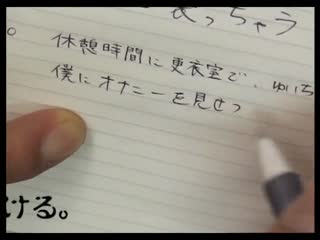 まっちゃう
。
休憩時間に更衣室で、ゆいち
僕にオナニーを見せっ
ける。